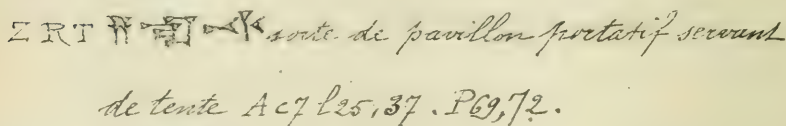 Z R T 𒍝 𒊏 𒋾 sorte de pavillon portatif servant
de tente Ac7 l25,37. P69,72.